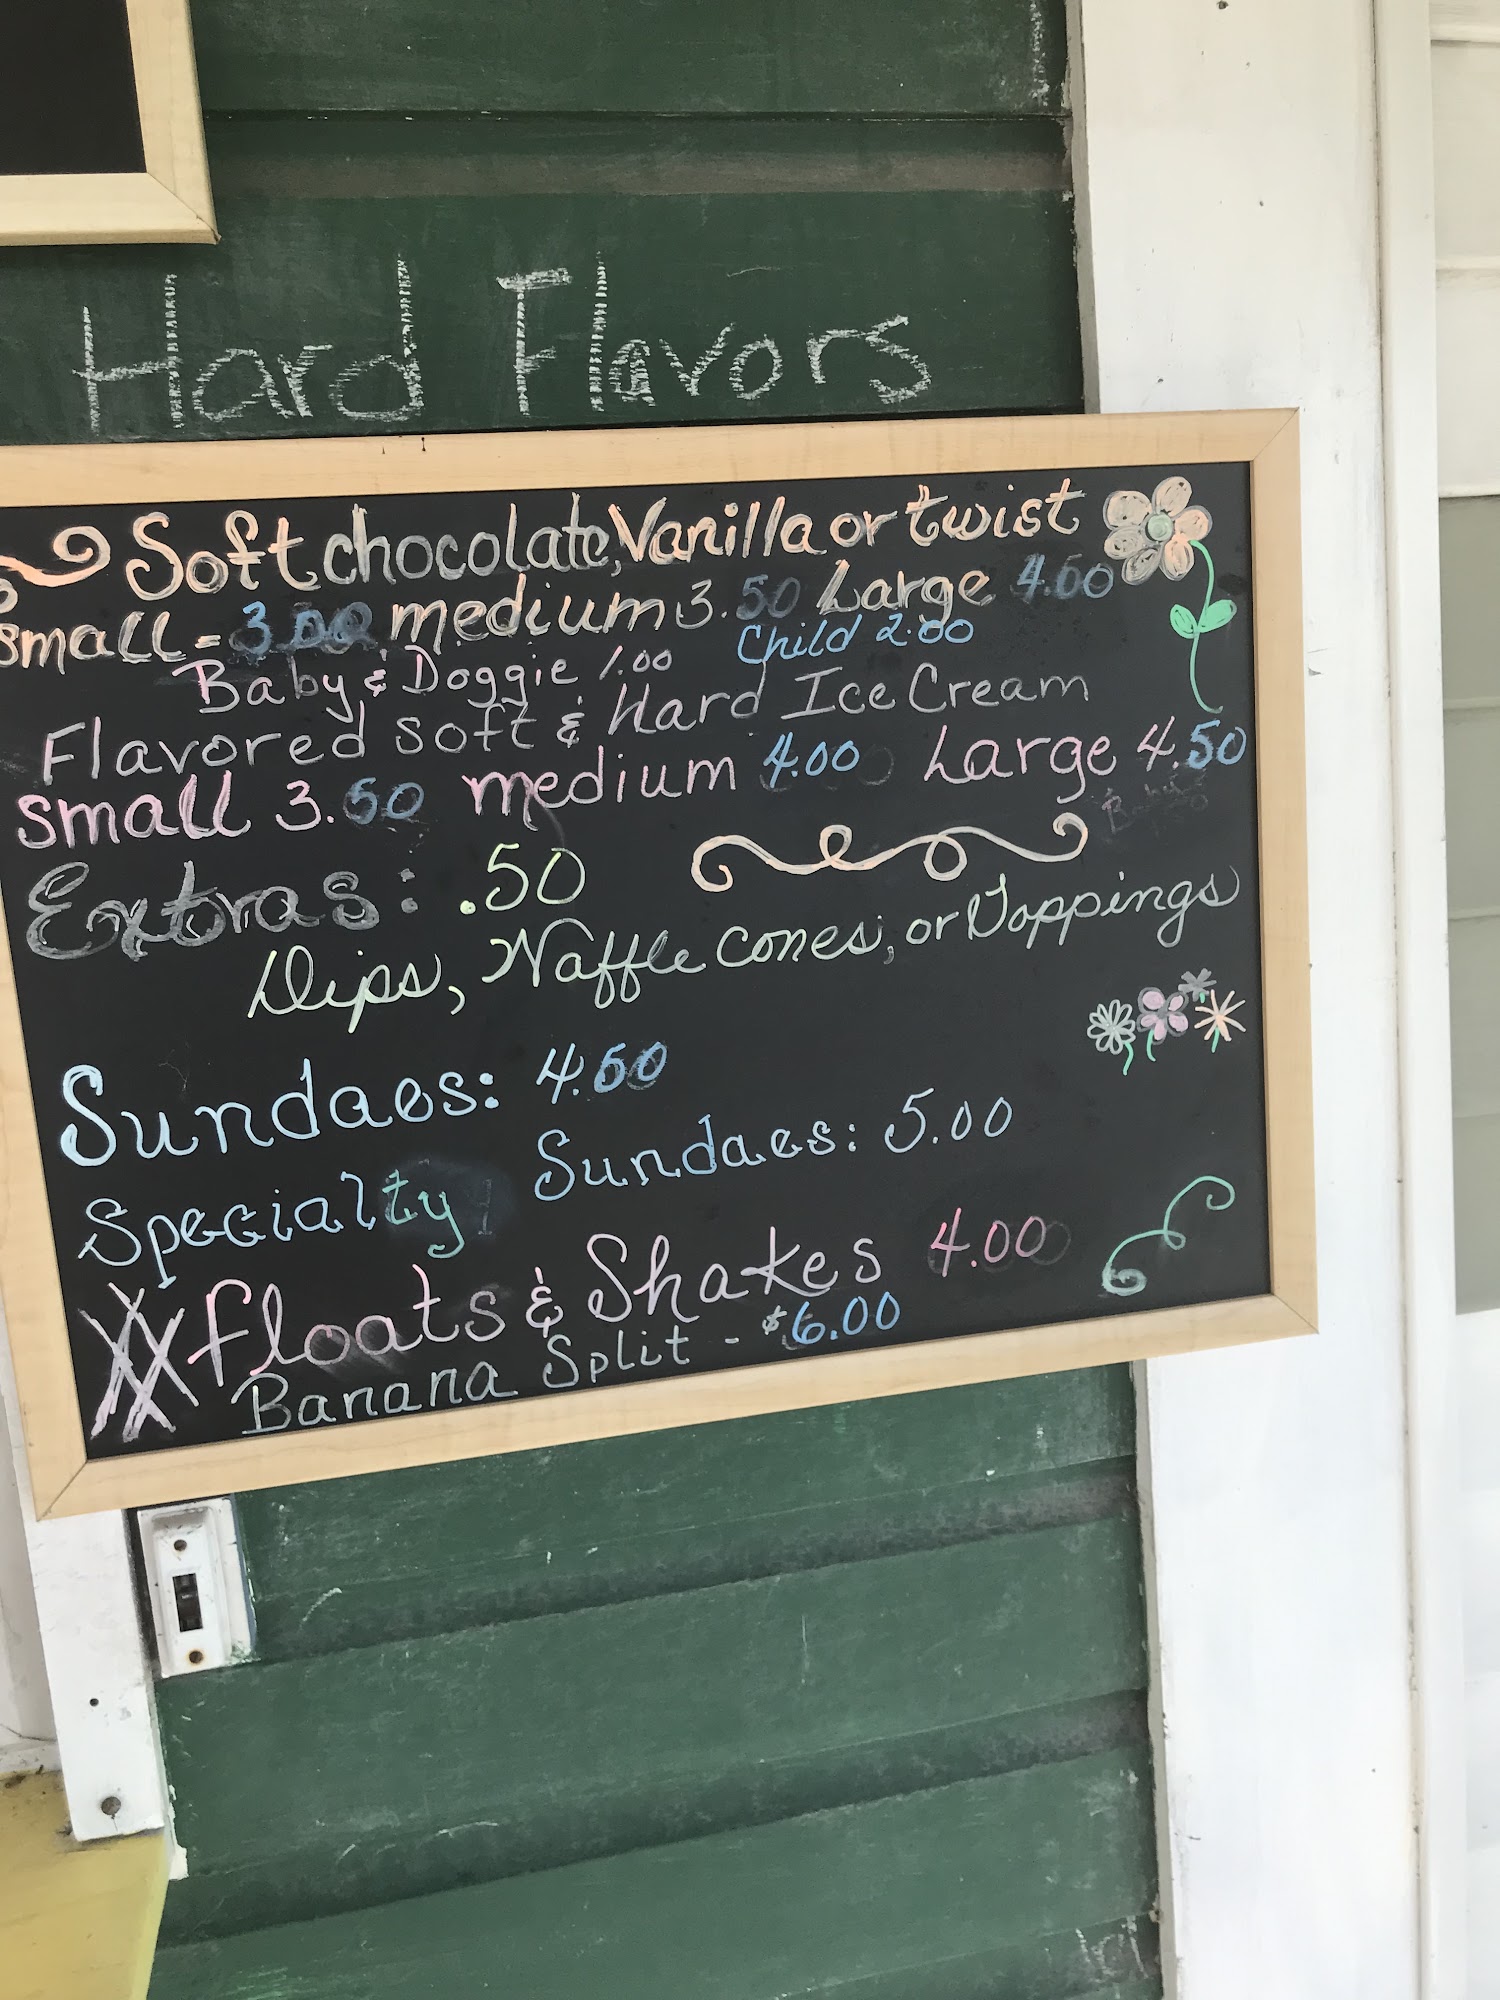 Hard Flavors
Soft chocolate, Vanilla or twist
small - 3.00 medium 3.50 Large 4.00
Baby & Doggie 1.00 Child 2.00
Flavored Soft & Hard Ice Cream
small 3.50 medium 4.00 Large 4.50
Extras: .50
Dips, Waffle cones, or Toppings
Sundaes: 4.50
Specialty Sundaes: 5.00
Floats & Shakes 4.00
Banana Split - $6.00